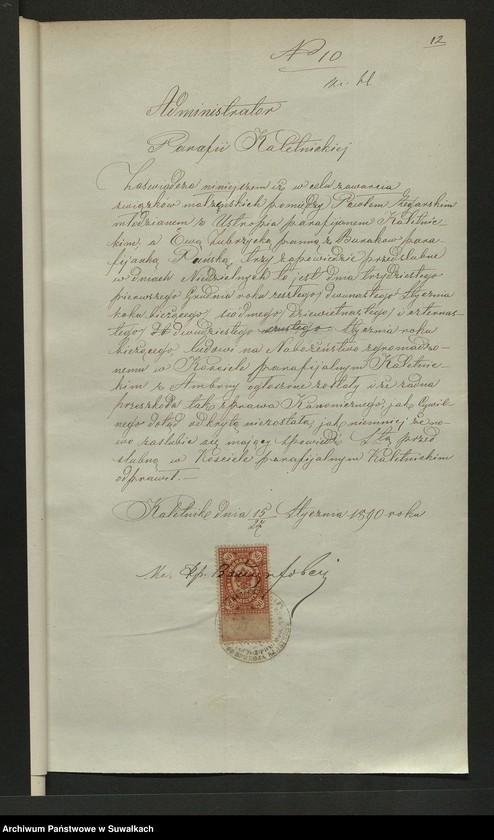 12
N 10
Administrator
Parafii Kaletnickiej
Zaświadcza niniejszem iż w celu zawarcia
związków małżeńskich pomiędzy Pawłem
młodzianem z Ustropia parafijanem Kaletnic-
kim, a Ewą Zubrzycką panną z Buraków para-
fijanką trzy zapowiedzie przedślubne
w dniach Niedzielnych to jest dnia trzydziestego
pierwszego Grudnia roku zeszłego dwunastego Stycznia
roku bieżącego siódmego dziewiętnastego i czternas-
tego dwudziestego szóstego Stycznia roku
bieżącego ludowi na Nabożeństwo zgromadzo-
nemu w Kościele parafijalnym Kaletnic-
kim z Ambony ogłoszone zostały i że żadna
przeszkoda tak z prawa Kanonicznego, jak Cywil-
nego dotąd odkrytą nie została, jak niemniej że no-
wo zaślubić się mający spowiedź Stą przed
ślubną w Kościele parafijalnym Kaletnickim
odprawił.—
Kaletnik dnia 15/27 Stycznia 1890 roku
Archiwum Państwowe w Suwałkach